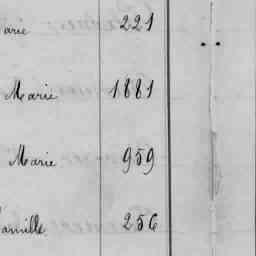 arie 221
Marie 1881
Marie 959
amille 256